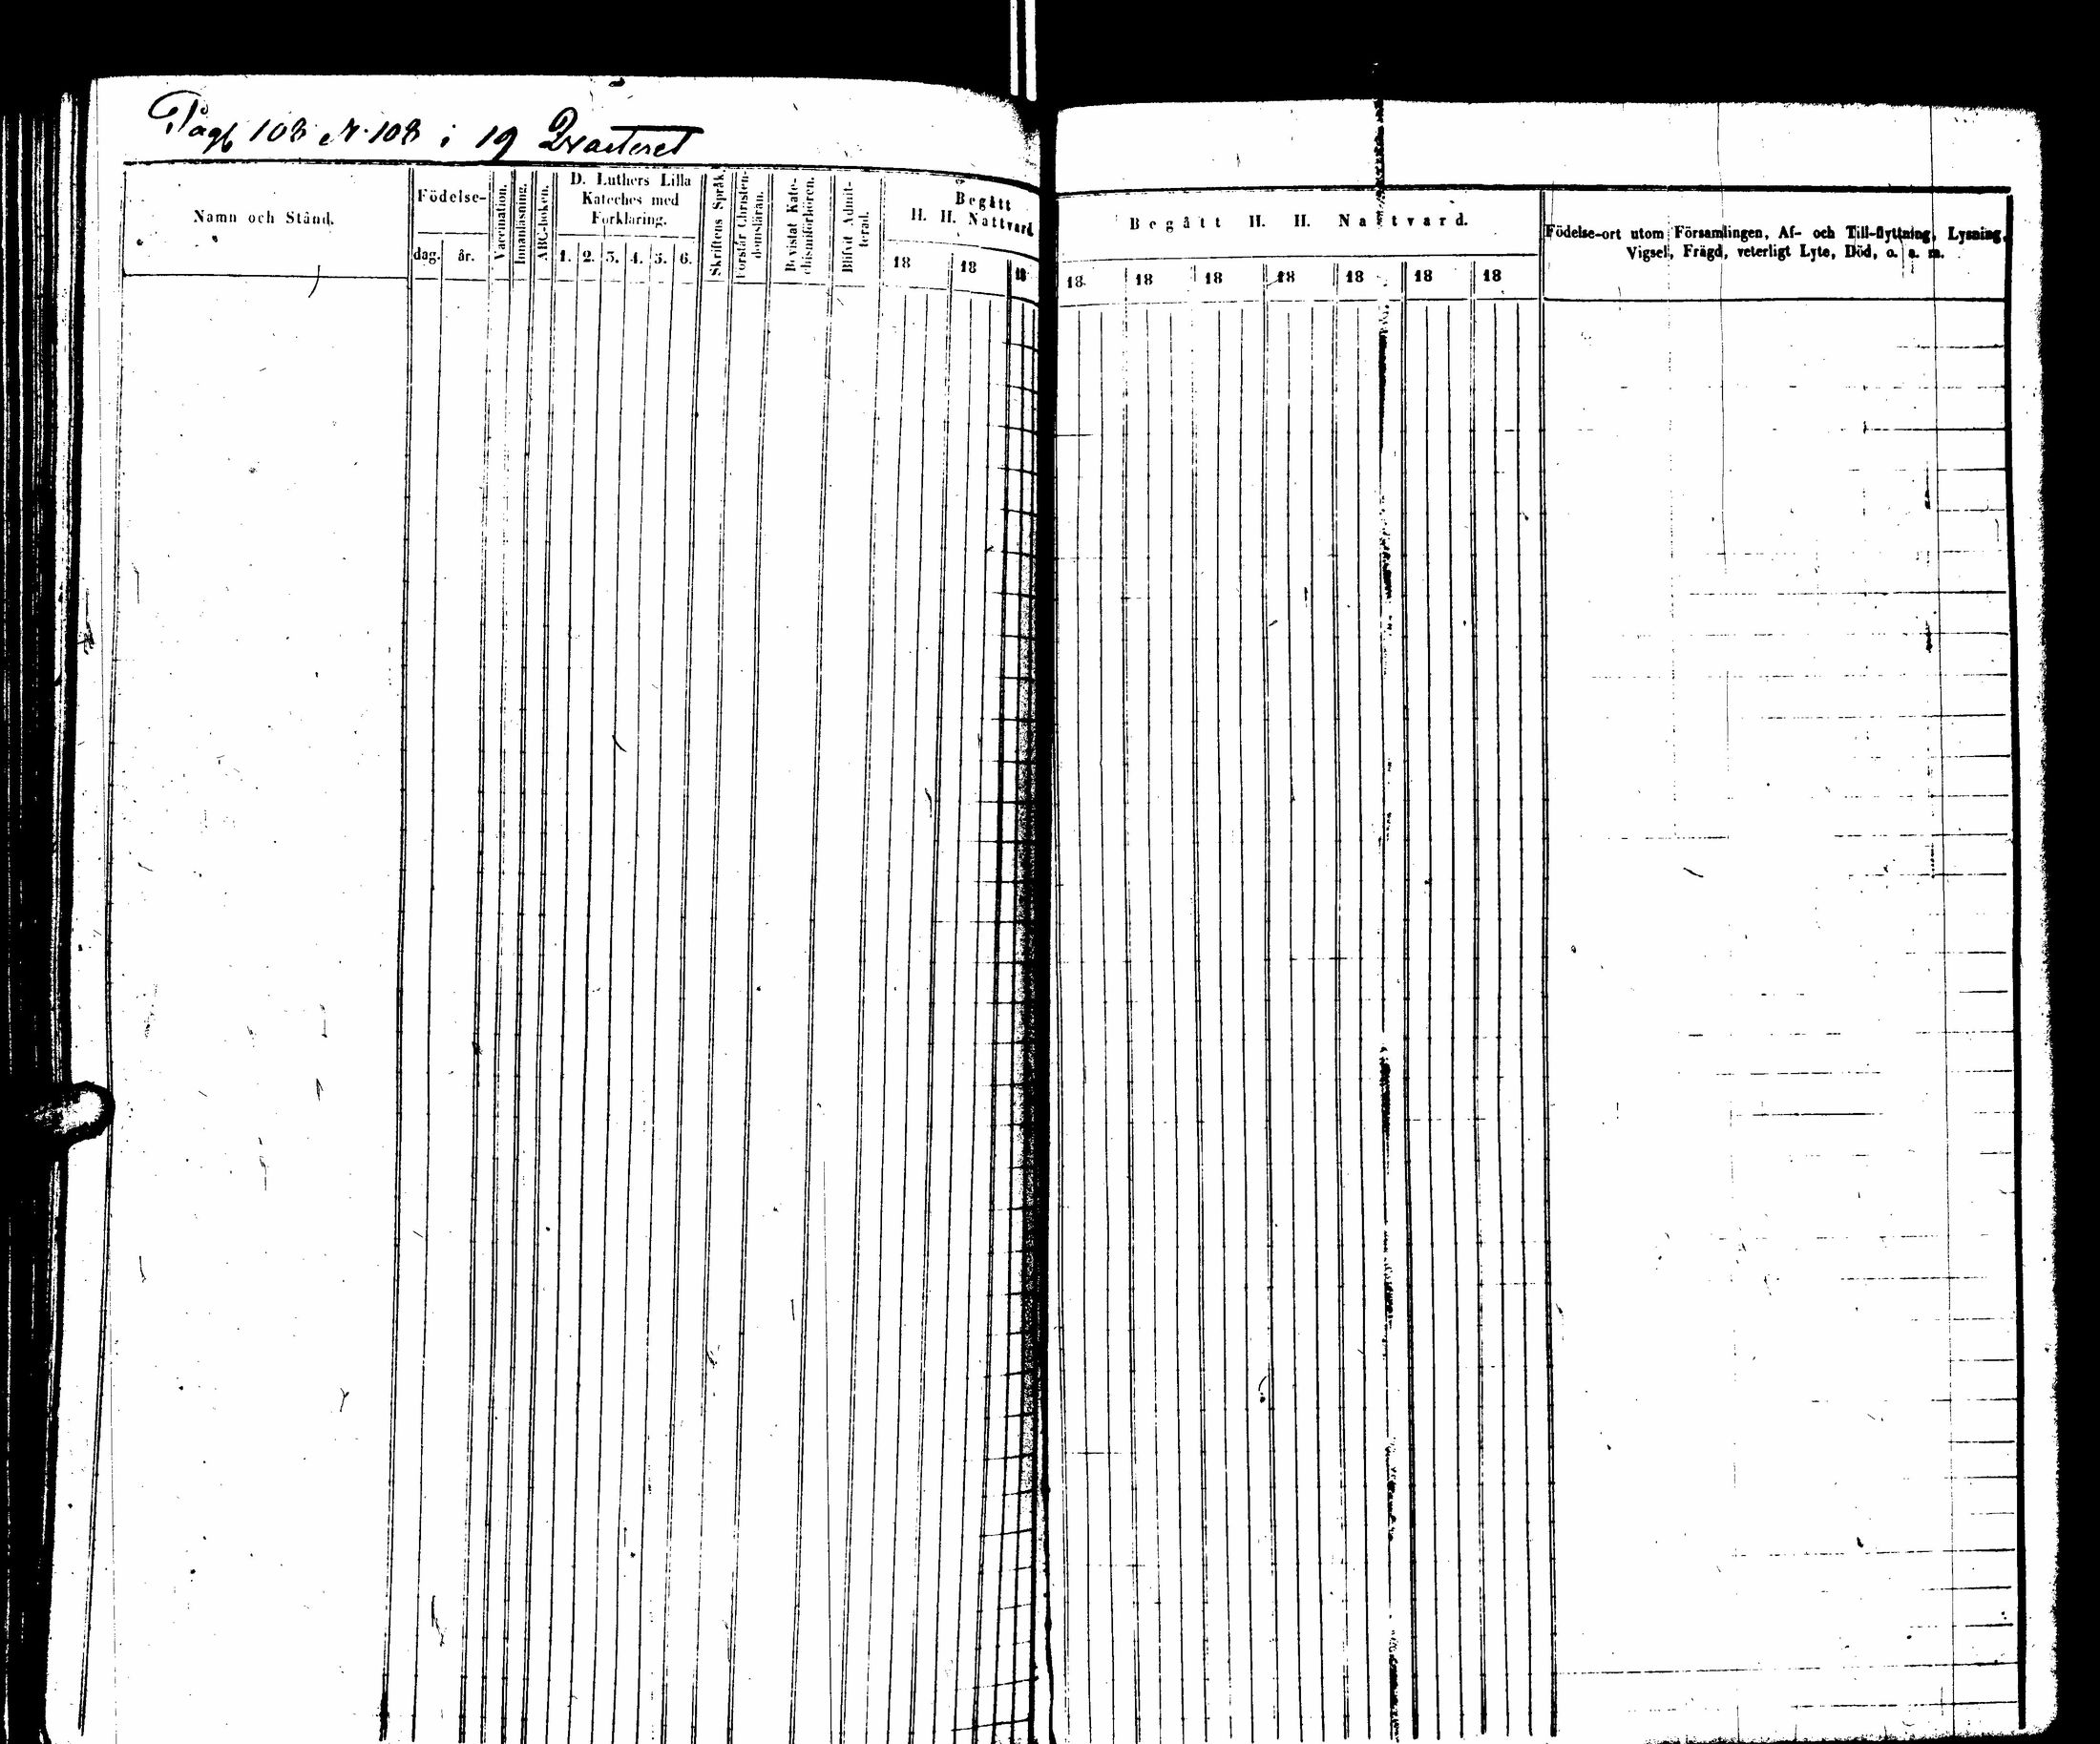 Pag 108 N. 108 i 19 Qvarteret
Namn och Stånd.
Födelse-
dag.
år.
Vaccination.
Innanläsning.
ABC-boken.
D. Luthers Lilla
Kateches med
Förklaring.
1. 2. 3. 4. 5. 6.
Skriftens Språk.
Förstår Christen-
domsläran.
Bevistat Kate-
chismiförhören.
Blifvit Admit-
terad.
Begått
H. H. Nattvard.
18 18 18
Begått H. H. Nattvard.
18 18 18 18 18 18 18
Födelse-ort utom Församlingen, Af- och Till-flyttning, Lysning,
Vigsel, Frägd, veterligt Lyte, Död, o. s. m.